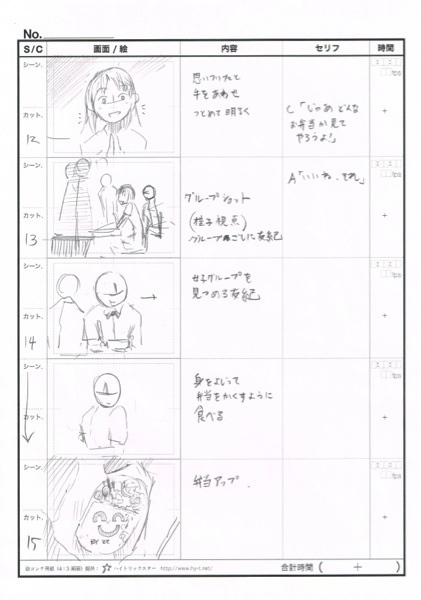 No.
S/C 画面/絵 内容 セリフ 時間
シーン.
カット.
12
思いついて
手をあわせ
つとめて明るく
C「じゃあどんな
お弁当か見て
やろうよ!」
シーン.
カット.
13
グループショット
(桂子視点)
グループごしに友紀
A「いいね、それ」
シーン.
カット.
14
女子グループを
見つめる友紀
シーン.
カット.
身をよじって
弁当をかくすように
食べる
シーン.
カット.
15
弁当アップ.
絵コンテ用紙(4:3画面) 提供: ハイトリックスター http://www.hy-t.net/
合計時間( + )